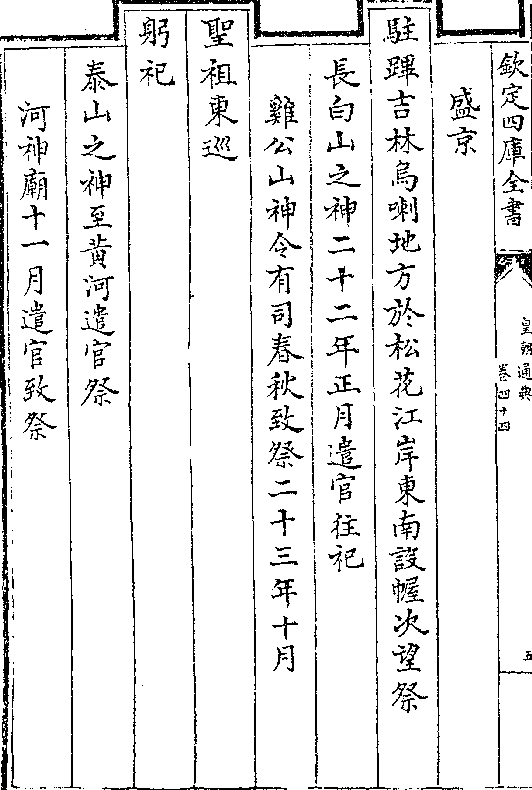 欽定四庫全書
皇朝通典
卷四十四
五
盛京
駐蹕吉林烏喇地方於松花江岸東南設幄次望祭
長白山之神二十二年正月遣官往祀
雞公山神令有司春秋致祭二十三年十月
聖祖東巡
躬祀
泰山之神至黄河遣官祭
河神廟十一月遣官致祭